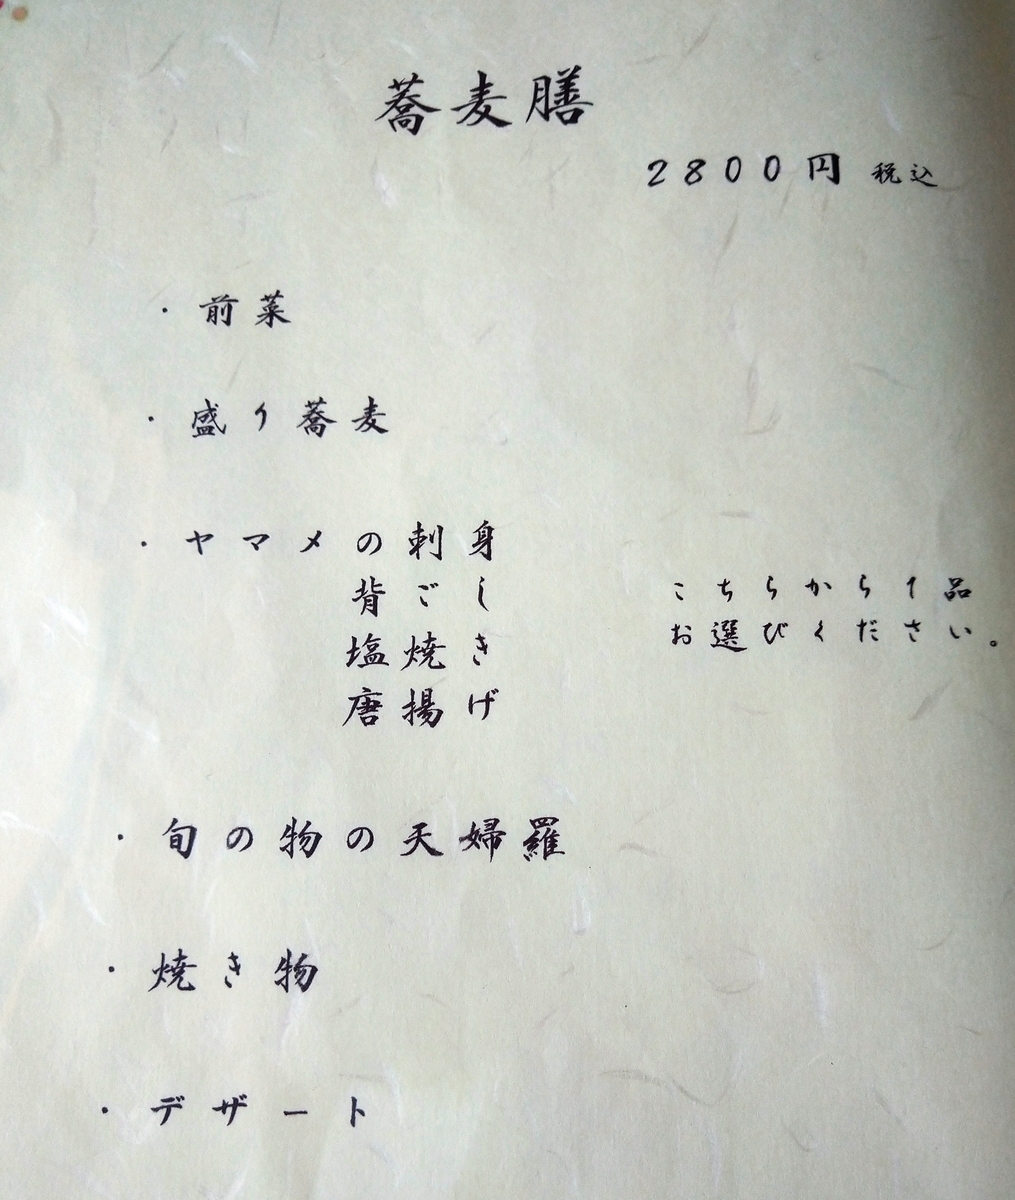 蕎麦膳
2800円 税込
・前菜
・盛り蕎麦
・ヤマメの刺身
背ごし
塩焼き
唐揚げ
こちらから1品
お選びください。
・旬の物の天婦羅
・焼き物
・デザート